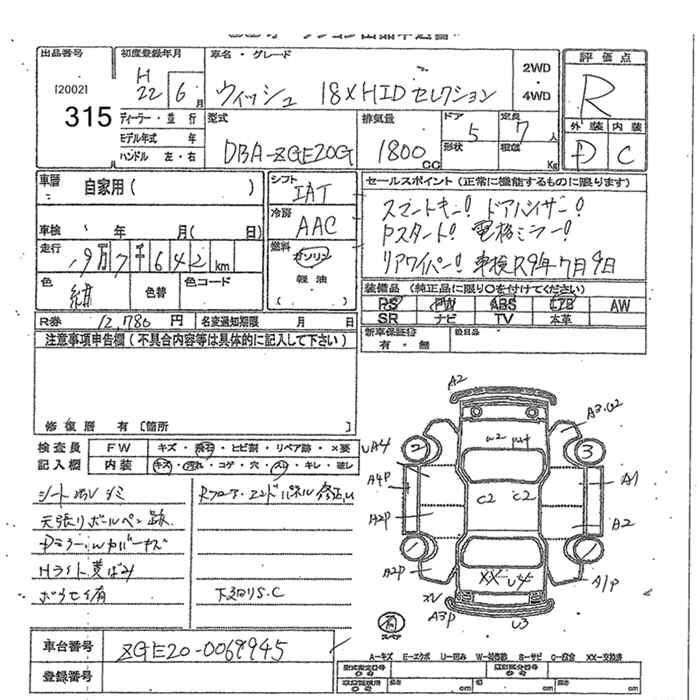 出品番号
[2002]
315
初度登録年月
H
22 6月
ディーラー・並行
モデル年式 年
ハンドル 左・右
車名・グレード
ウィッシュ 1.8X HIDセレクション
2WD
・
4WD
型式
DBA-ZGE20G
排気量
1800
CC
ドア
5
形状
定員
7人
積載
Kg
評価点
R
外装 内装
D C
車歴
自家用( )
車検 年 月( 日)
走行
19万7千642km
色
紺
色替
色コード
シフト
IAT
冷房
AAC
燃料
ガソリン
軽油
( )
セールスポイント(正常に機能するものに限ります)
スマートキー! ドアバイザー!
Pスタート! 電格ミラー!
リアワイパー! 車検R9年7月9日
装備品 (純正品に限り○を付けてください)
PS PW ABS エアB AW
SR ナビ TV 本革
新車保証書
有・無
後日品
R券 12,780円 名変通知期限 月 日
注意事項申告欄(不具合内容等は具体的に記入して下さい)
修復歴 有[箇所 ]
検査員
記入欄
FW キズ・飛石・ヒビ割・リペア跡・×要
内装 キズ・汚れ・コゲ・穴・スレ・キレ・破レ
シート汚レ シミ
天張りボールペン跡
Dミラー・Wカバーキズ
Hライト黄ばみ
Rフロア・エンドパネル修正U
下廻りS.C
車台番号 ZGE20-0069945
登録番号
A2
A3.U2
UA4
2
3
W2 U4
A4P
A1
C2 C2
A2P
A2
A2P
XX U4
A1P
XV
A3P
U3
有
スペア
A-キズ E-エクボ U-凹み W-補修跡 S-サビ C-腐食 XX-交換済
長さ cm 幅 cm 高さ cm